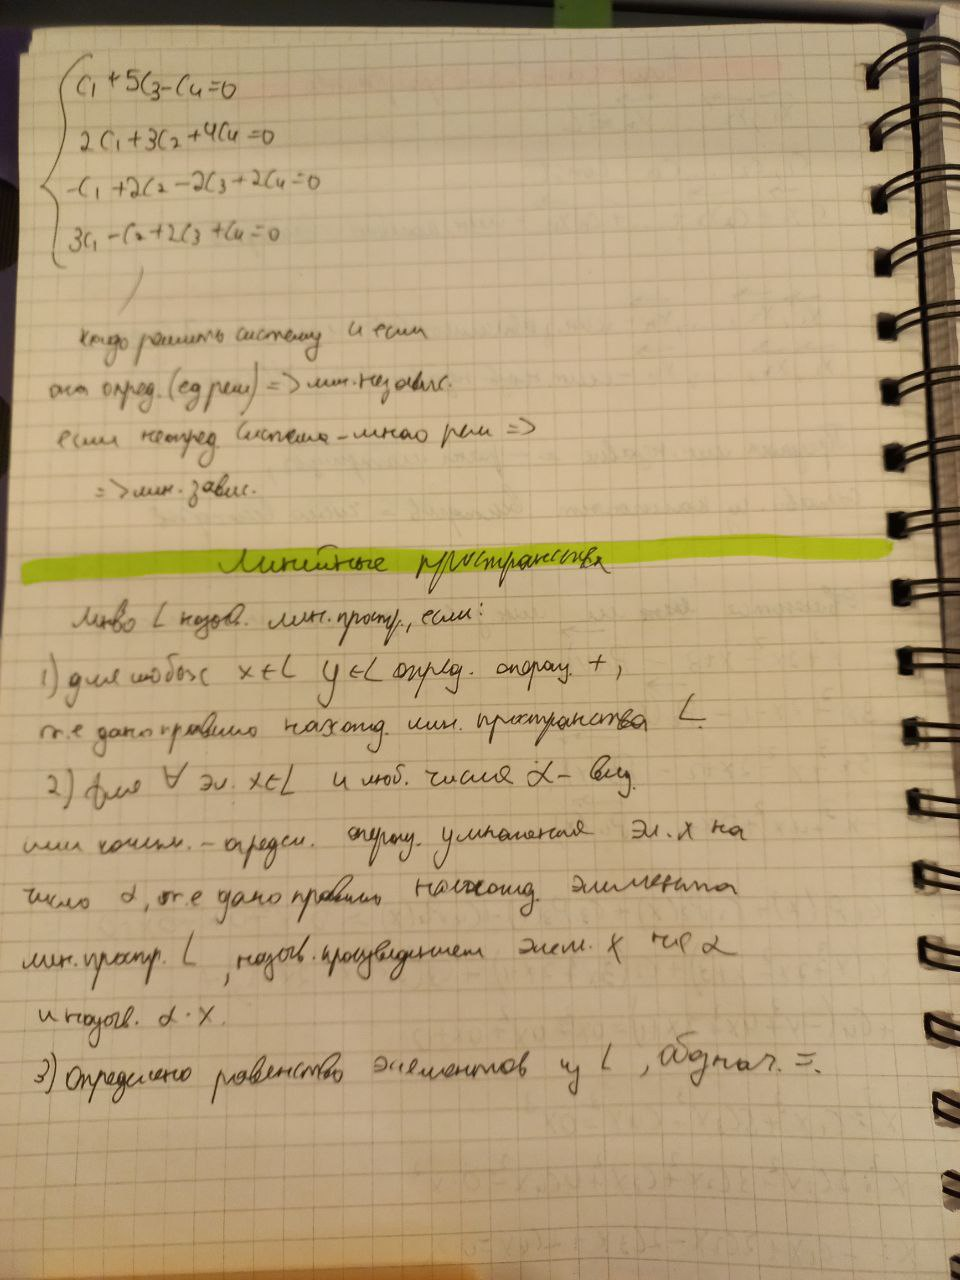 C₁ + 5C₃ - C₄ = 0
2C₁ + 3C₂ + 4C₄ = 0
-C₁ + 2C₂ - 2C₃ + 2C₄ = 0
3C₁ - C₂ + 2C₃ + C₄ = 0
надо решить систему и если
она опред. (ед реш) => лин. независ.
если неопред система - много реш =>
=> лин. завис.
Линейные пространства
Мн-во L назыв. лин. простр., если:
1) для любых x ∈ L y ∈ L опред. операц. +,
т.е дано правило наход. лин. пространства L.
2) для ∀ эл. x ∈ L и люб. числа α - вещ.
или компл. - опредл. операц. умножения эл. x на
число α, т.е дано правило наход. элемента
лин. простр. L, назыв. произведением элем. x на α
и назыв. α · x.
3) Определено равенство элементов из L, обознач. =.